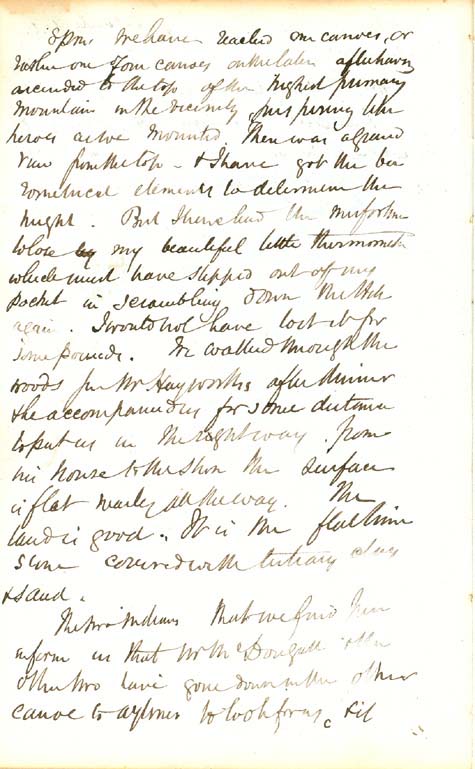 8 p.m. We have reached our canoes, or
rather one of our canoes on the lake after having
ascended to the top of the highest primary
mountain in the vicinity, perspiring like
heroes as we mounted. There was a grand
view from the top - & I have got the ba
rometrical elements to determine the
height. But I there had the misfortune
to lose my beautiful little thermometer
which must have slipped out of my
pocket in scrambling down the hill
again. I would not have lost it for
some pounds. We walked through the
woods from Mr Hayworths after dinner
& he accompanied us for some distance
to put us in the right way. From
his house to the shore the surface
is flat nearly all the way. The
land is good. It is the flat lime
stone covered with tertiary clay
& sand.
The two Indians that we find here
inform us that Mr McDougall & the
other two have gone down in the other
canoe to Aylmer to look for us,